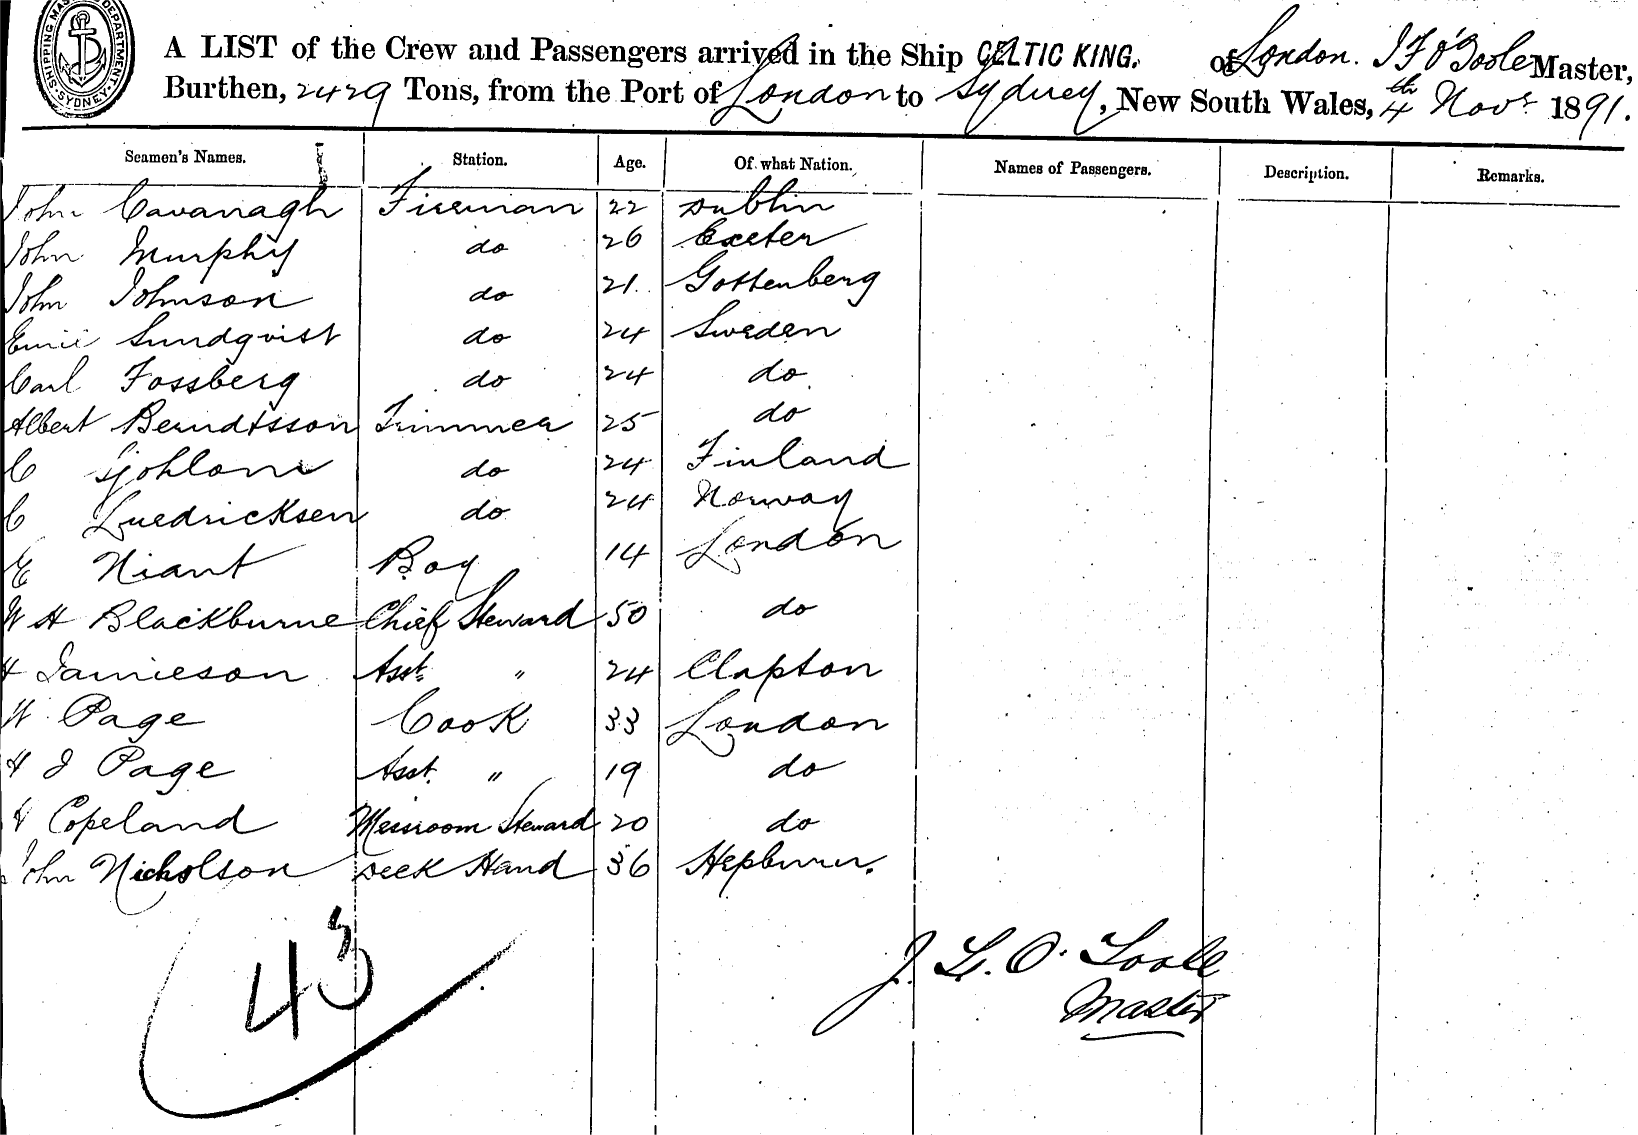 SHIPPING MASTER'S DEPARTMENT SYDNEY
A LIST of the Crew and Passengers arrived in the Ship CELTIC KING. of London. J F O'Toole Master,
Burthen, 2429 Tons, from the Port of London to Sydney, New South Wales, 4th Novr 1891.
Seamen's Names. Station. Age. Of what Nation. Names of Passengers. Description. Remarks.
John Cavanagh Fireman 22 Dublin
John Murphy do 26 Exeter
John Johnson do 21. Gottenberg
Emil Sundqvist do 24 Sweden
Carl Fossberg do 24 do
Albert Berndtsson Trimmer 25 do
C Sjohlom do 24 Finland
C Luedricksen do 24 Norway
E Niant Boy 14 London
W H Blackburne Chief Steward 50 do
H Jamieson Asst. " 24 Clapton
W Page Cook 33 London
H J Page Asst. " 19 do
H Copeland Messroom Steward 20 do
John Nicholson Deck Hand 36 Hepburn.
43
J. L. O. Toole
Master